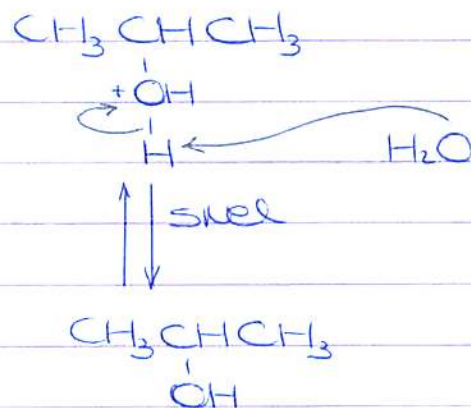 CH₃CHCH₃
+ OH
H
H₂O
snel
CH₃CHCH₃
OH